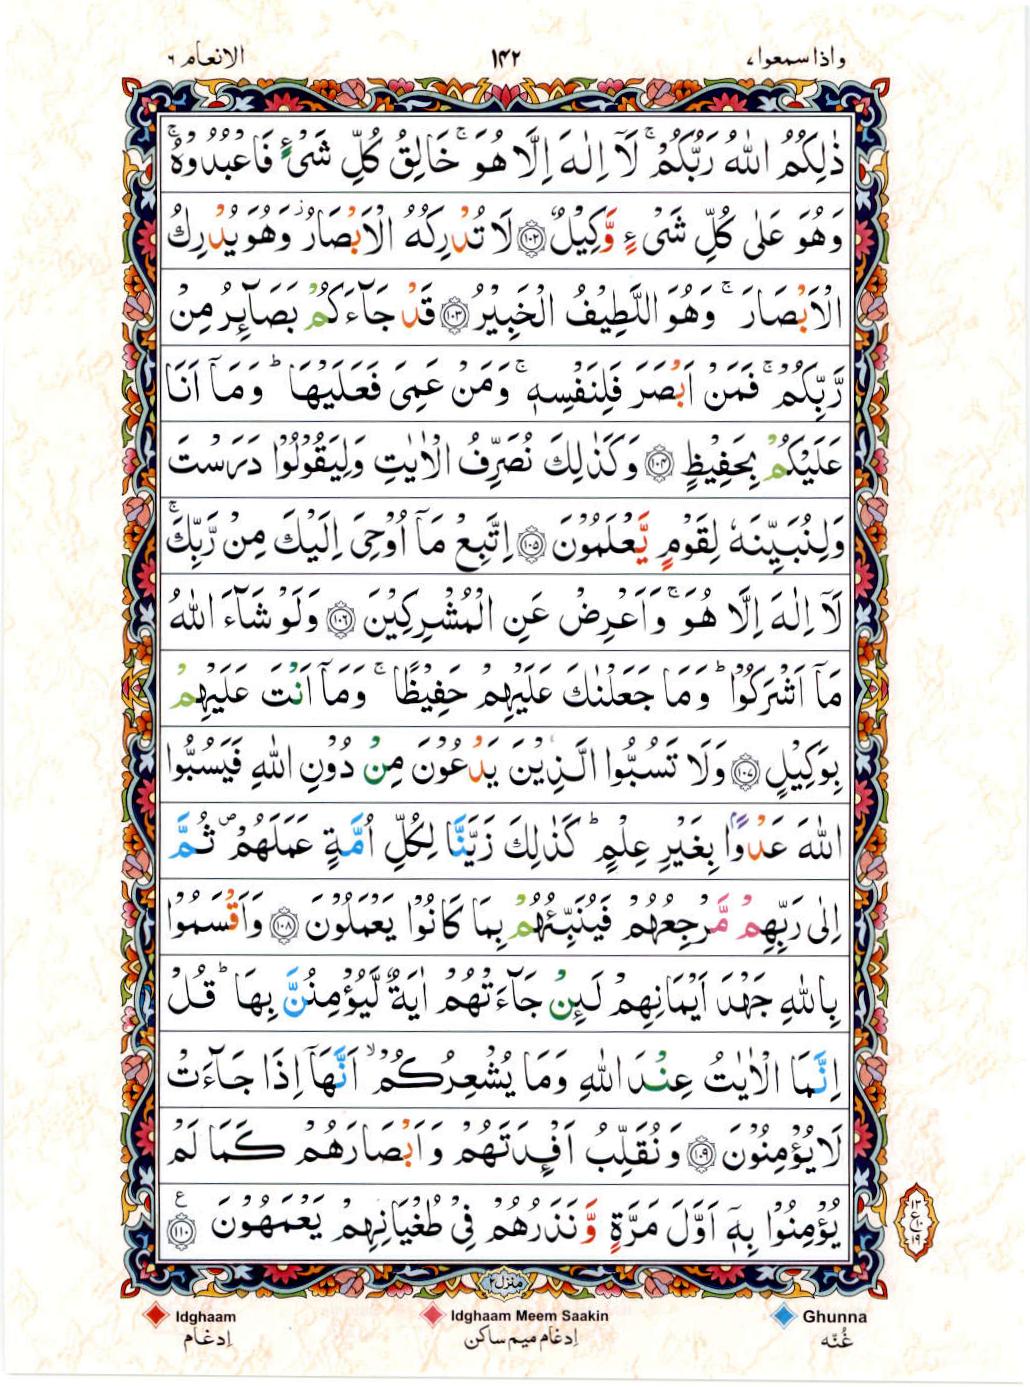 واذا سمعوا ٧
١٤٢
الانعام ٦
ذٰلِكُمُ اللّٰهُ رَبُّكُمْ ۚ لَاۤ اِلٰهَ اِلَّا هُوَ ۚ خَالِقُ كُلِّ شَیْءٍ فَاعْبُدُوْهُ ۚ
وَهُوَ عَلٰی كُلِّ شَیْءٍ وَّكِیْلٌ ﴿۱۰۲﴾ لَا تُدْرِكُهُ الْاَبْصَارُ ؗ وَهُوَ یُدْرِكُ
الْاَبْصَارَ ۚ وَهُوَ اللَّطِیْفُ الْخَبِیْرُ ﴿۱۰۳﴾ قَدْ جَآءَكُمْ بَصَآىِٕرُ مِنْ
رَّبِّكُمْ ۚ فَمَنْ اَبْصَرَ فَلِنَفْسِهٖ ۚ وَمَنْ عَمِیَ فَعَلَیْهَا ؕ وَمَاۤ اَنَا
عَلَیْكُمْ بِحَفِیْظٍ ﴿۱۰۴﴾ وَكَذٰلِكَ نُصَرِّفُ الْاٰیٰتِ وَلِیَقُوْلُوْا دَرَسْتَ
وَلِنُبَیِّنَهٗ لِقَوْمٍ یَّعْلَمُوْنَ ﴿۱۰۵﴾ اِتَّبِعْ مَاۤ اُوْحِیَ اِلَیْكَ مِنْ رَّبِّكَ ۚ
لَاۤ اِلٰهَ اِلَّا هُوَ ۚ وَاَعْرِضْ عَنِ الْمُشْرِكِیْنَ ﴿۱۰۶﴾ وَلَوْ شَآءَ اللّٰهُ
مَاۤ اَشْرَكُوْا ؕ وَمَا جَعَلْنٰكَ عَلَیْهِمْ حَفِیْظًا ۚ وَمَاۤ اَنْتَ عَلَیْهِمْ
بِوَكِیْلٍ ﴿۱۰۷﴾ وَلَا تَسُبُّوا الَّذِیْنَ یَدْعُوْنَ مِنْ دُوْنِ اللّٰهِ فَیَسُبُّوا
اللّٰهَ عَدْوًۢا بِغَیْرِ عِلْمٍ ؕ كَذٰلِكَ زَیَّنَّا لِكُلِّ اُمَّةٍ عَمَلَهُمْ ۪ ثُمَّ
اِلٰی رَبِّهِمْ مَّرْجِعُهُمْ فَیُنَبِّئُهُمْ بِمَا كَانُوْا یَعْمَلُوْنَ ﴿۱۰۸﴾ وَاَقْسَمُوْا
بِاللّٰهِ جَهْدَ اَیْمَانِهِمْ لَىِٕنْ جَآءَتْهُمْ اٰیَةٌ لَّیُؤْمِنُنَّ بِهَا ؕ قُلْ
اِنَّمَا الْاٰیٰتُ عِنْدَ اللّٰهِ وَمَا یُشْعِرُكُمْ ۙ اَنَّهَاۤ اِذَا جَآءَتْ
لَا یُؤْمِنُوْنَ ﴿۱۰۹﴾ وَنُقَلِّبُ اَفْـِٕدَتَهُمْ وَاَبْصَارَهُمْ كَمَا لَمْ
یُؤْمِنُوْا بِهٖۤ اَوَّلَ مَرَّةٍ وَّنَذَرُهُمْ فِیْ طُغْیَانِهِمْ یَعْمَهُوْنَ ﴿۱۱۰﴾ ع
١٣
ع١٠
١٩
منزل٢
Idghaam
اِدغَام
Idghaam Meem Saakin
اِدغَام میم ساكن
Ghunna
غُنّه